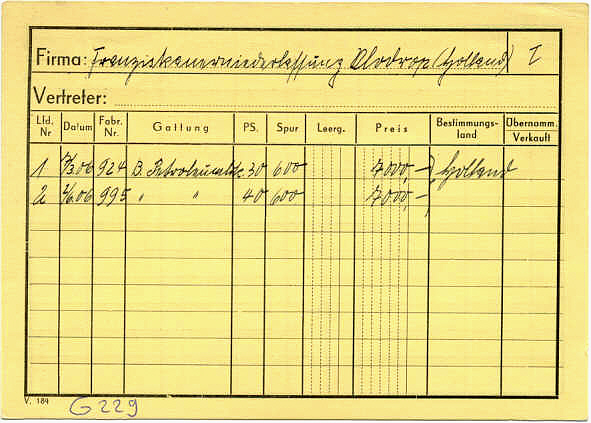 Firma: Franziskanerniederlassung Vlodrop (Holland) I
Vertreter:
Lfd. Nr Datum Fabr. Nr. Gattung PS. Spur Leerg. Preis Bestimmungsland Übernomm. Verkauft
1 7/3.06 924 B. 30 600 7000,- Holland
2 2/6.06 995 " " 40 600 7000,-
V. 184 G 229